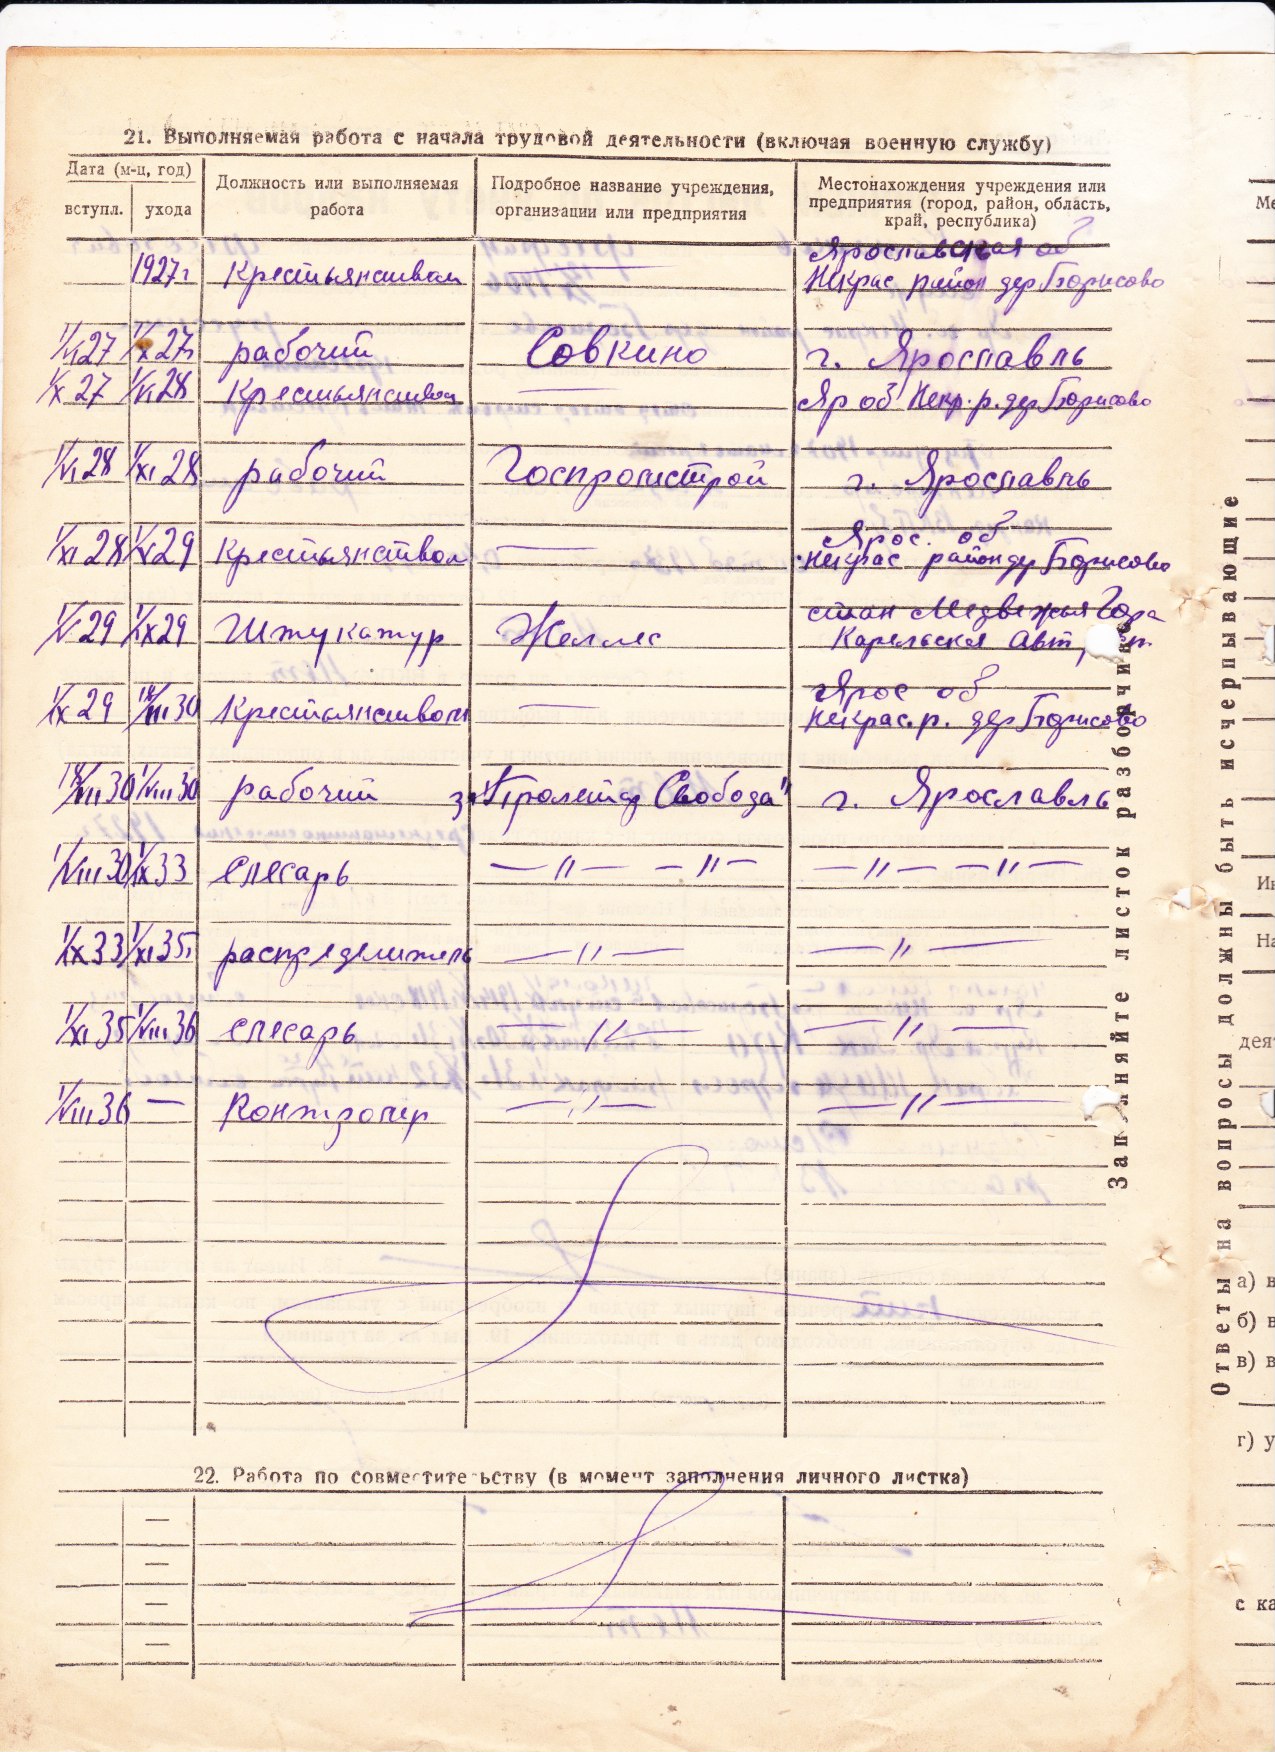 21. Выполняемая работа с начала трудовой деятельности (включая военную службу)
Дата (м-ц, год)
вступл. ухода
Должность или выполняемая работа
Подробное название учреждения, организации или предприятия
Местонахождения учреждения или предприятия (город, район, область, край, республика)
Ярославская об
1927г Крестьянством — Некрас. район дер Борисово
1/VI 27 1/X 27г рабочий Совкино г. Ярославль
1/X 27 1/VI 28 Крестьянством — Яр об Некр. р. дер Борисово
1/VI 28 1/XI 28 рабочий Госпромстрой г. Ярославль
Ярос. об
1/XI 28 1/V 29 Крестьянством — Некрас район дер Борисово
стан Медвежья Гора
1/V 29 1/IX 29 Штукатур Желлес Карельская Авт
Ярос об
1/IX 29 18/VII 30 Крестьянством — Некрас. р. дер Борисово
18/VII 30 1/VIII 30 рабочий з. "Пролетар Свобода" г. Ярославль
1/VIII 30 1/IX 33 слесарь —"— —"— —"— —"—
1/IX 33 1/XI 35г распределитель —"— —"—
1/XI 35 1/VIII 36 слесарь —"— —"—
1/VIII 36 — Контролер —"— —"—
22. Работа по совместительству (в момент заполнения личного листка)
—
—
—
—
Заполняйте листок разборчиво
Ответы на вопросы должны быть исчерпывающие
Ме
Ин
На
деят
а) в
б) в
в) в
г) у
с ка